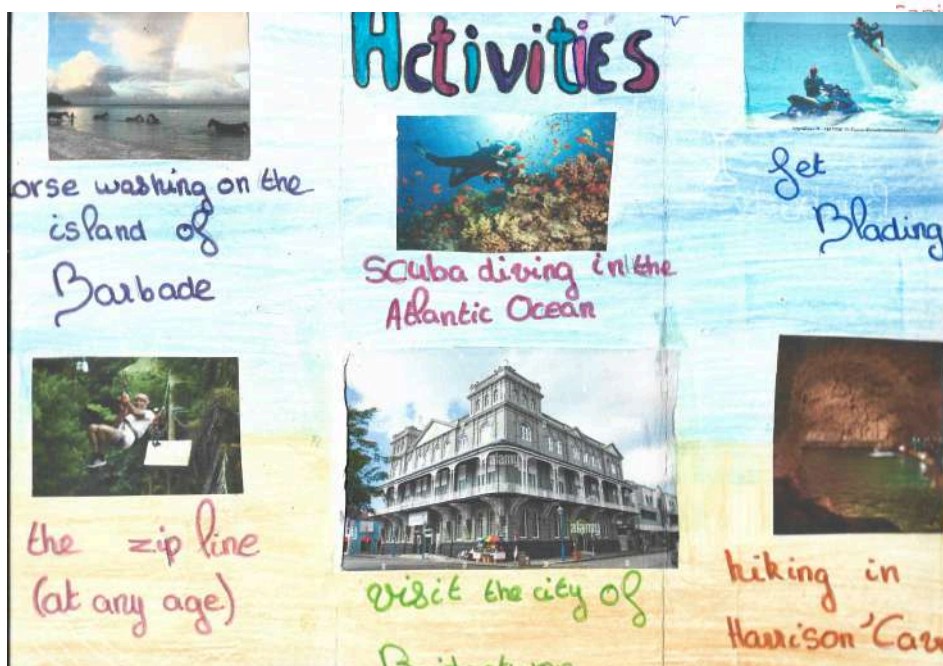 Activities
orse washing on the
island of
Barbade
Scuba diving in the
Atlantic Ocean
Jet
Blading
the zip line
(at any age)
visit the city of
hiking in
Harrison'Cav